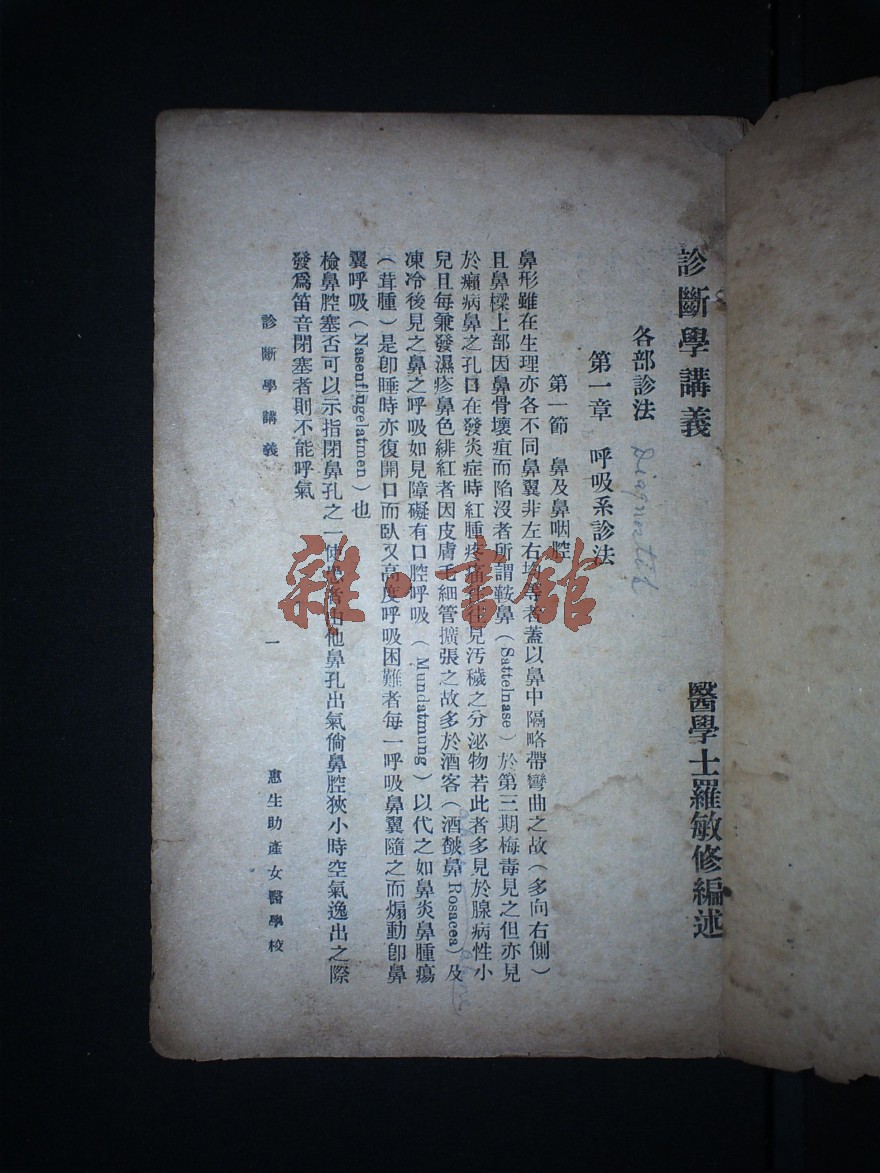 診斷學講義
醫學士羅敏修編述
各部診法
Diagnostik
第一章 呼吸系診法
第一節 鼻及鼻咽腔
鼻形雖在生理亦各不同鼻翼非左右均等者蓋以鼻中隔略帶彎曲之故(多向右側)
且鼻樑上部因鼻骨壞疽而陷沒者所謂鞍鼻(Sattelnase)於第三期梅毒見之但亦見
於癩病鼻之孔口在發炎症時紅腫疼痛往往見汚穢之分泌物若此者多見於腺病性小
兒且每兼發濕疹鼻色緋紅者因皮膚毛細管擴張之故多於酒客(酒皶鼻 Rosacea)及
凍冷後見之鼻之呼吸如見障礙有口腔呼吸(Mundatmung)以代之如鼻炎鼻腫瘍
(茸腫)是卽睡時亦復開口而臥又高度呼吸困難者每一呼吸鼻翼隨之而煽動卽鼻
翼呼吸(Nasenflügelatmen)也
檢鼻腔塞否可以示指閉鼻孔之一使患者由他鼻孔出氣倘鼻腔狹小時空氣逸出之際
發爲笛音閉塞者則不能呼氣
診斷學講義
一
惠生助產女醫學校
雜·書館